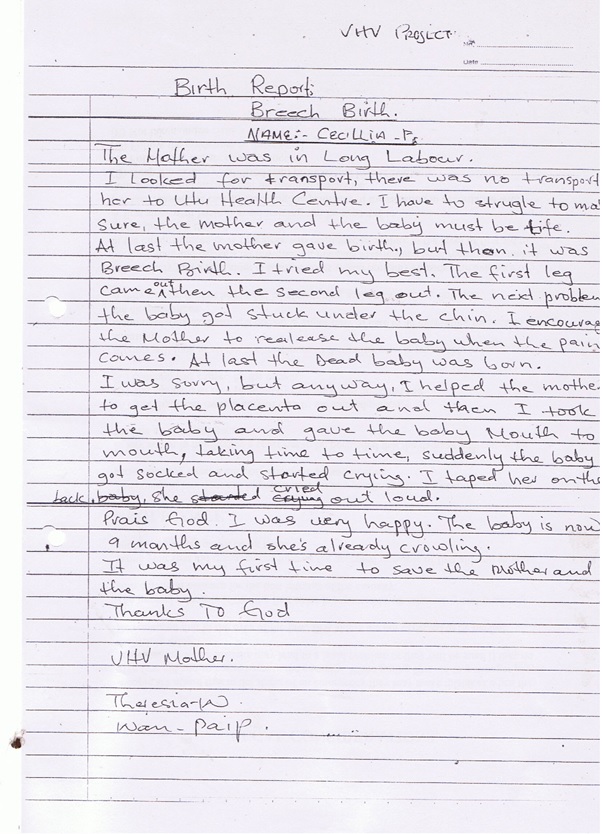 VHV PROJECT
No:
Date
Birth Report:
Breech Birth.
NAME:- CECILLIA - P
The Mother was in Long Labour.
I looked for transport, there was no transport
her to Utu Health Centre. I have to strugle to ma
sure, the mother and the baby must be life.
At last the mother gave birth, but then it was
Breech Birth. I tried my best. The first leg
came out then the second leg out. The next problem
the baby got stuck under the chin. I encourag
the Mother to realease the baby when the pain
comes. At last the Dead baby was born.
I was sorry, but anyway, I helped the mothe
to get the placenta out and then I took
the baby and gave the baby Mouth to
mouth, taking time to time, suddenly the baby
got socked and started crying. I taped her on the
back, baby, she started crying cried out loud.
Prais God. I was very happy. The baby is now
9 months and she's already crowling.
It was my first time to save the mother and
the baby.
Thanks To God
VHV Mother.
Theresia-W
Wan-Paip.